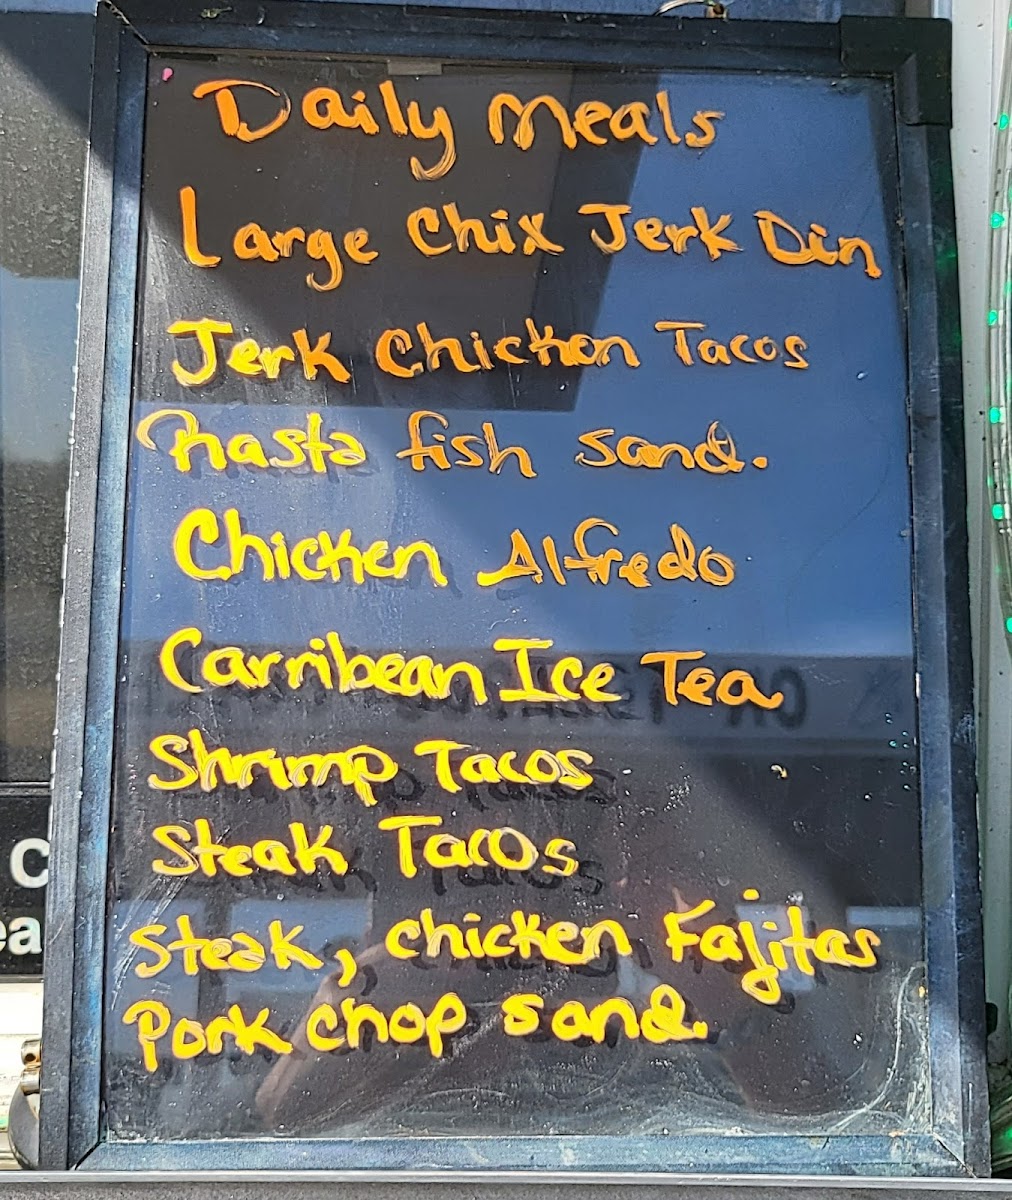 Daily Meals
Large Chix Jerk Din
Jerk Chicken Tacos
Rasta fish sand.
Chicken Alfredo
Carribean Ice Tea
Shrimp Tacos
Steak Tacos
Steak, chicken Fajitas
Pork chop sand.
C
ea